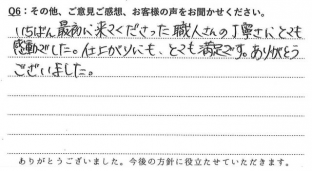 Q6：その他、ご意見ご感想、お客様の声をお聞かせください。
いちばん最初に来てくださった職人さんの丁寧さにとても
感動でした。仕上がりにも、とても満足です。ありがとう
ございました。
ありがとうございました。今後の方針に役立たせていただきます。